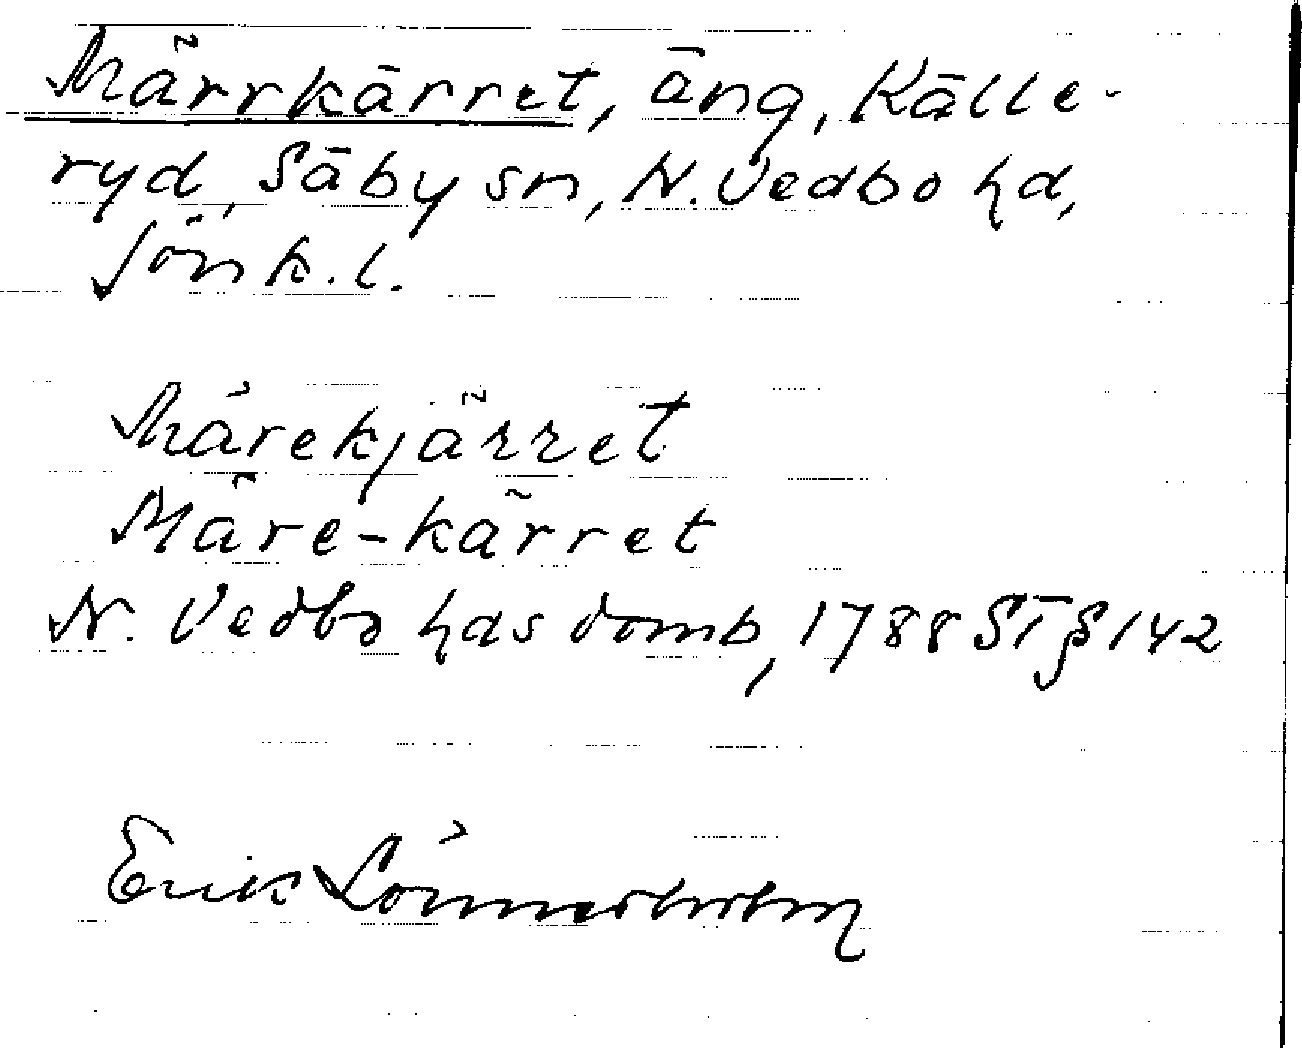 Märrkärret, äng, Källe-
ryd, Säby sn, N. Vedbo hd,
Jönk. l.
Märekjärret
Märe-kärret
N. Vedbo hds domb, 1788 ST § 142
Erik Lönnerholm